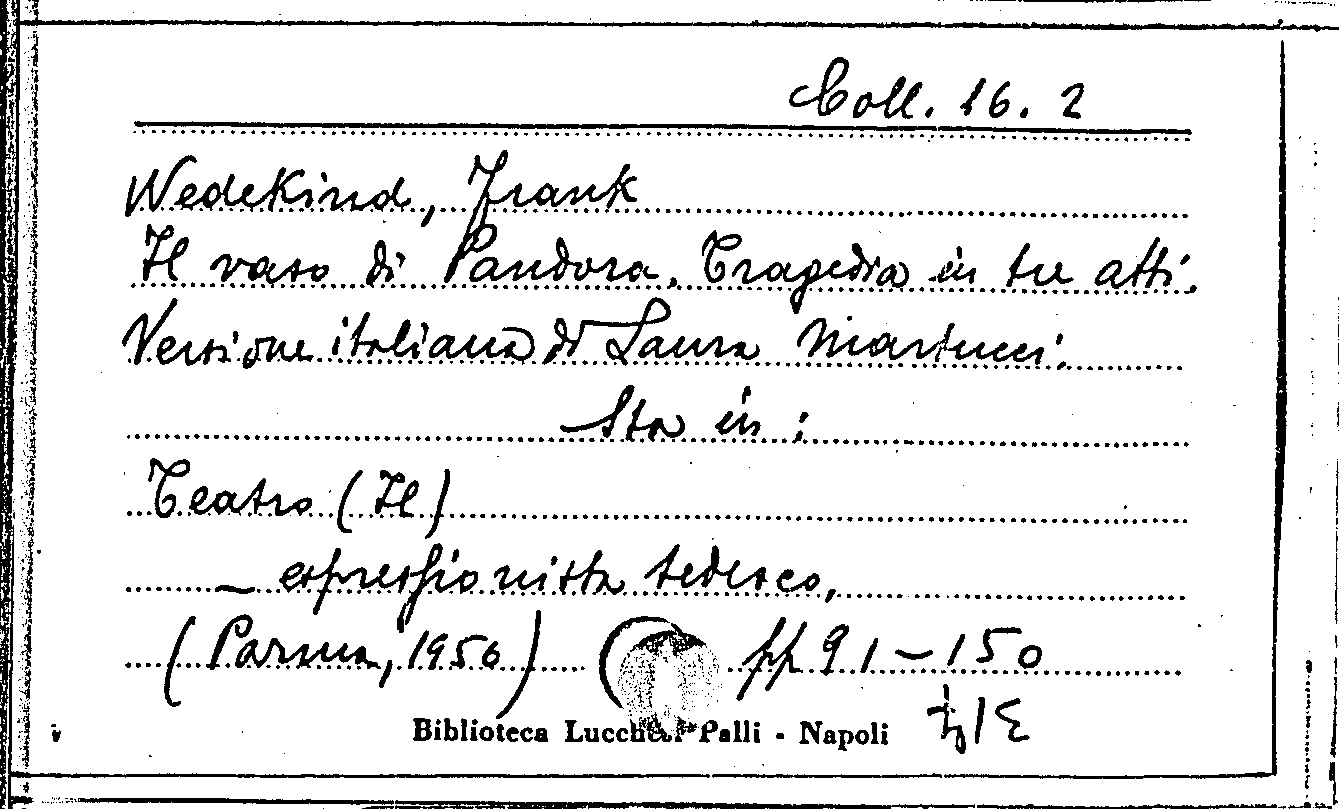 Coll. 16. 2
Wedekind, Frank
Il vaso di Pandora. Tragedia in tre atti.
Versione italiana di Laura Martucci.
Sta in:
Teatro (Il)
— espressionista tedesco,
(Parma, 1956) pp 91-150
Biblioteca Lucchesi Palli - Napoli